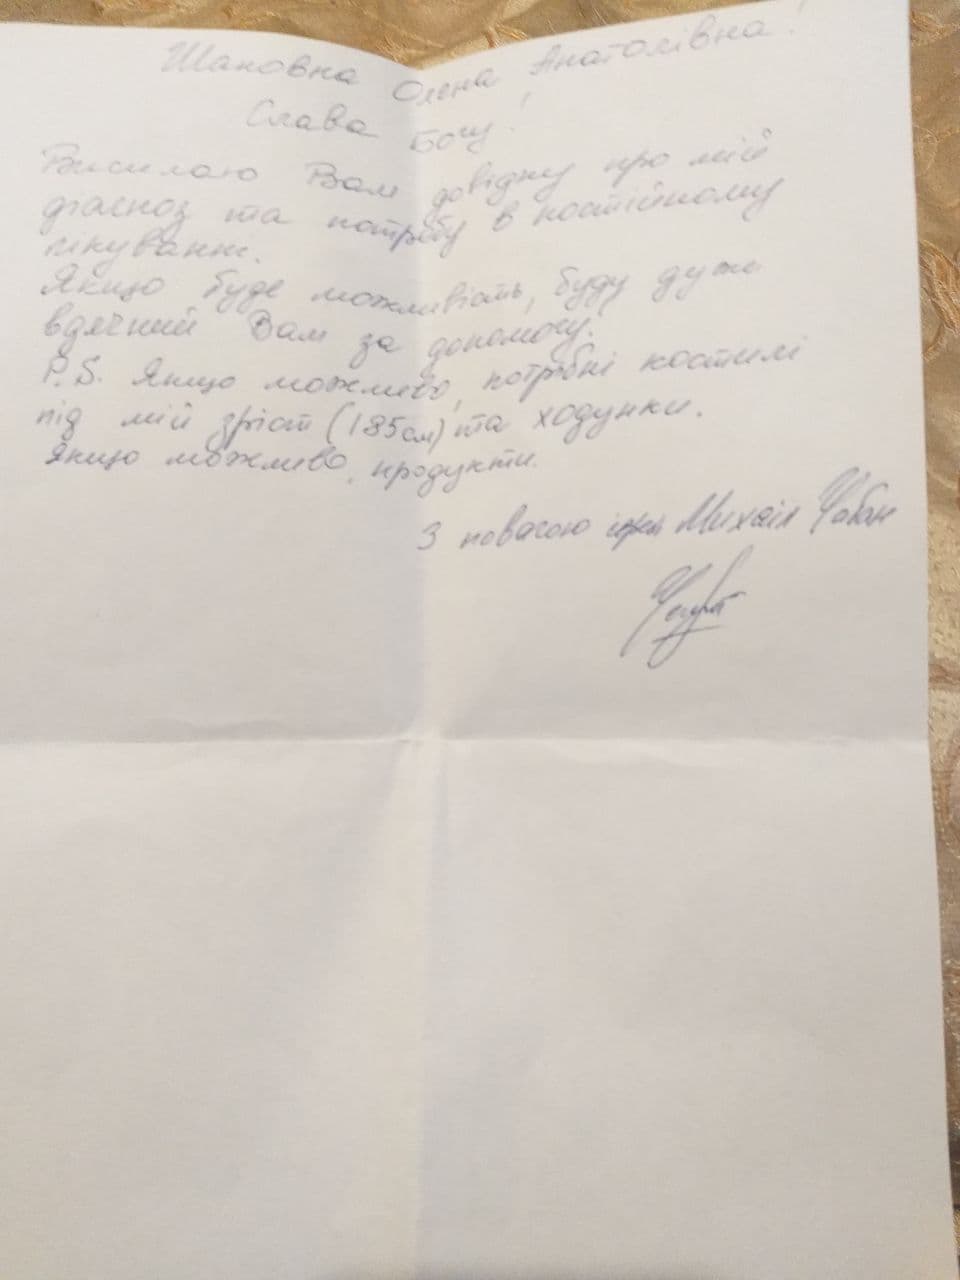 Шановна Олена Анатоліївна!
Слава Богу!
Висилаю Вам довідку про мій
діагноз та потребу в постійному
лікуванні.
Якщо буде можливість, буду дуже
вдячний Вам за допомогу.
P.S. Якщо можливо, потрібні костилі
під мій зріст (185см) та ходунки.
Якщо можливо, продукти.
З повагою Михаїл Чабан